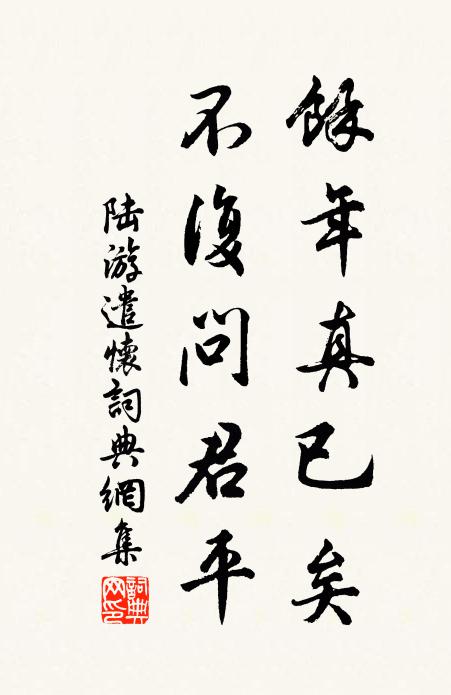 餘年真已矣
不復問君平
陸游遣懷詞典網集
詞典网印